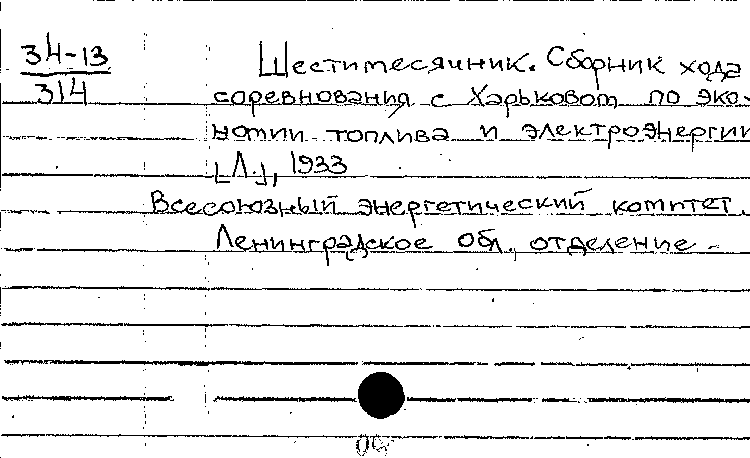 34-13
314
Шестимесячник. Сборник хода
соревнования с Харьковом по эко-
номии топлива и электроэнергии
[Л.], 1933
Всесоюзный энергетический комитет.
Ленинградское обл. отделение -